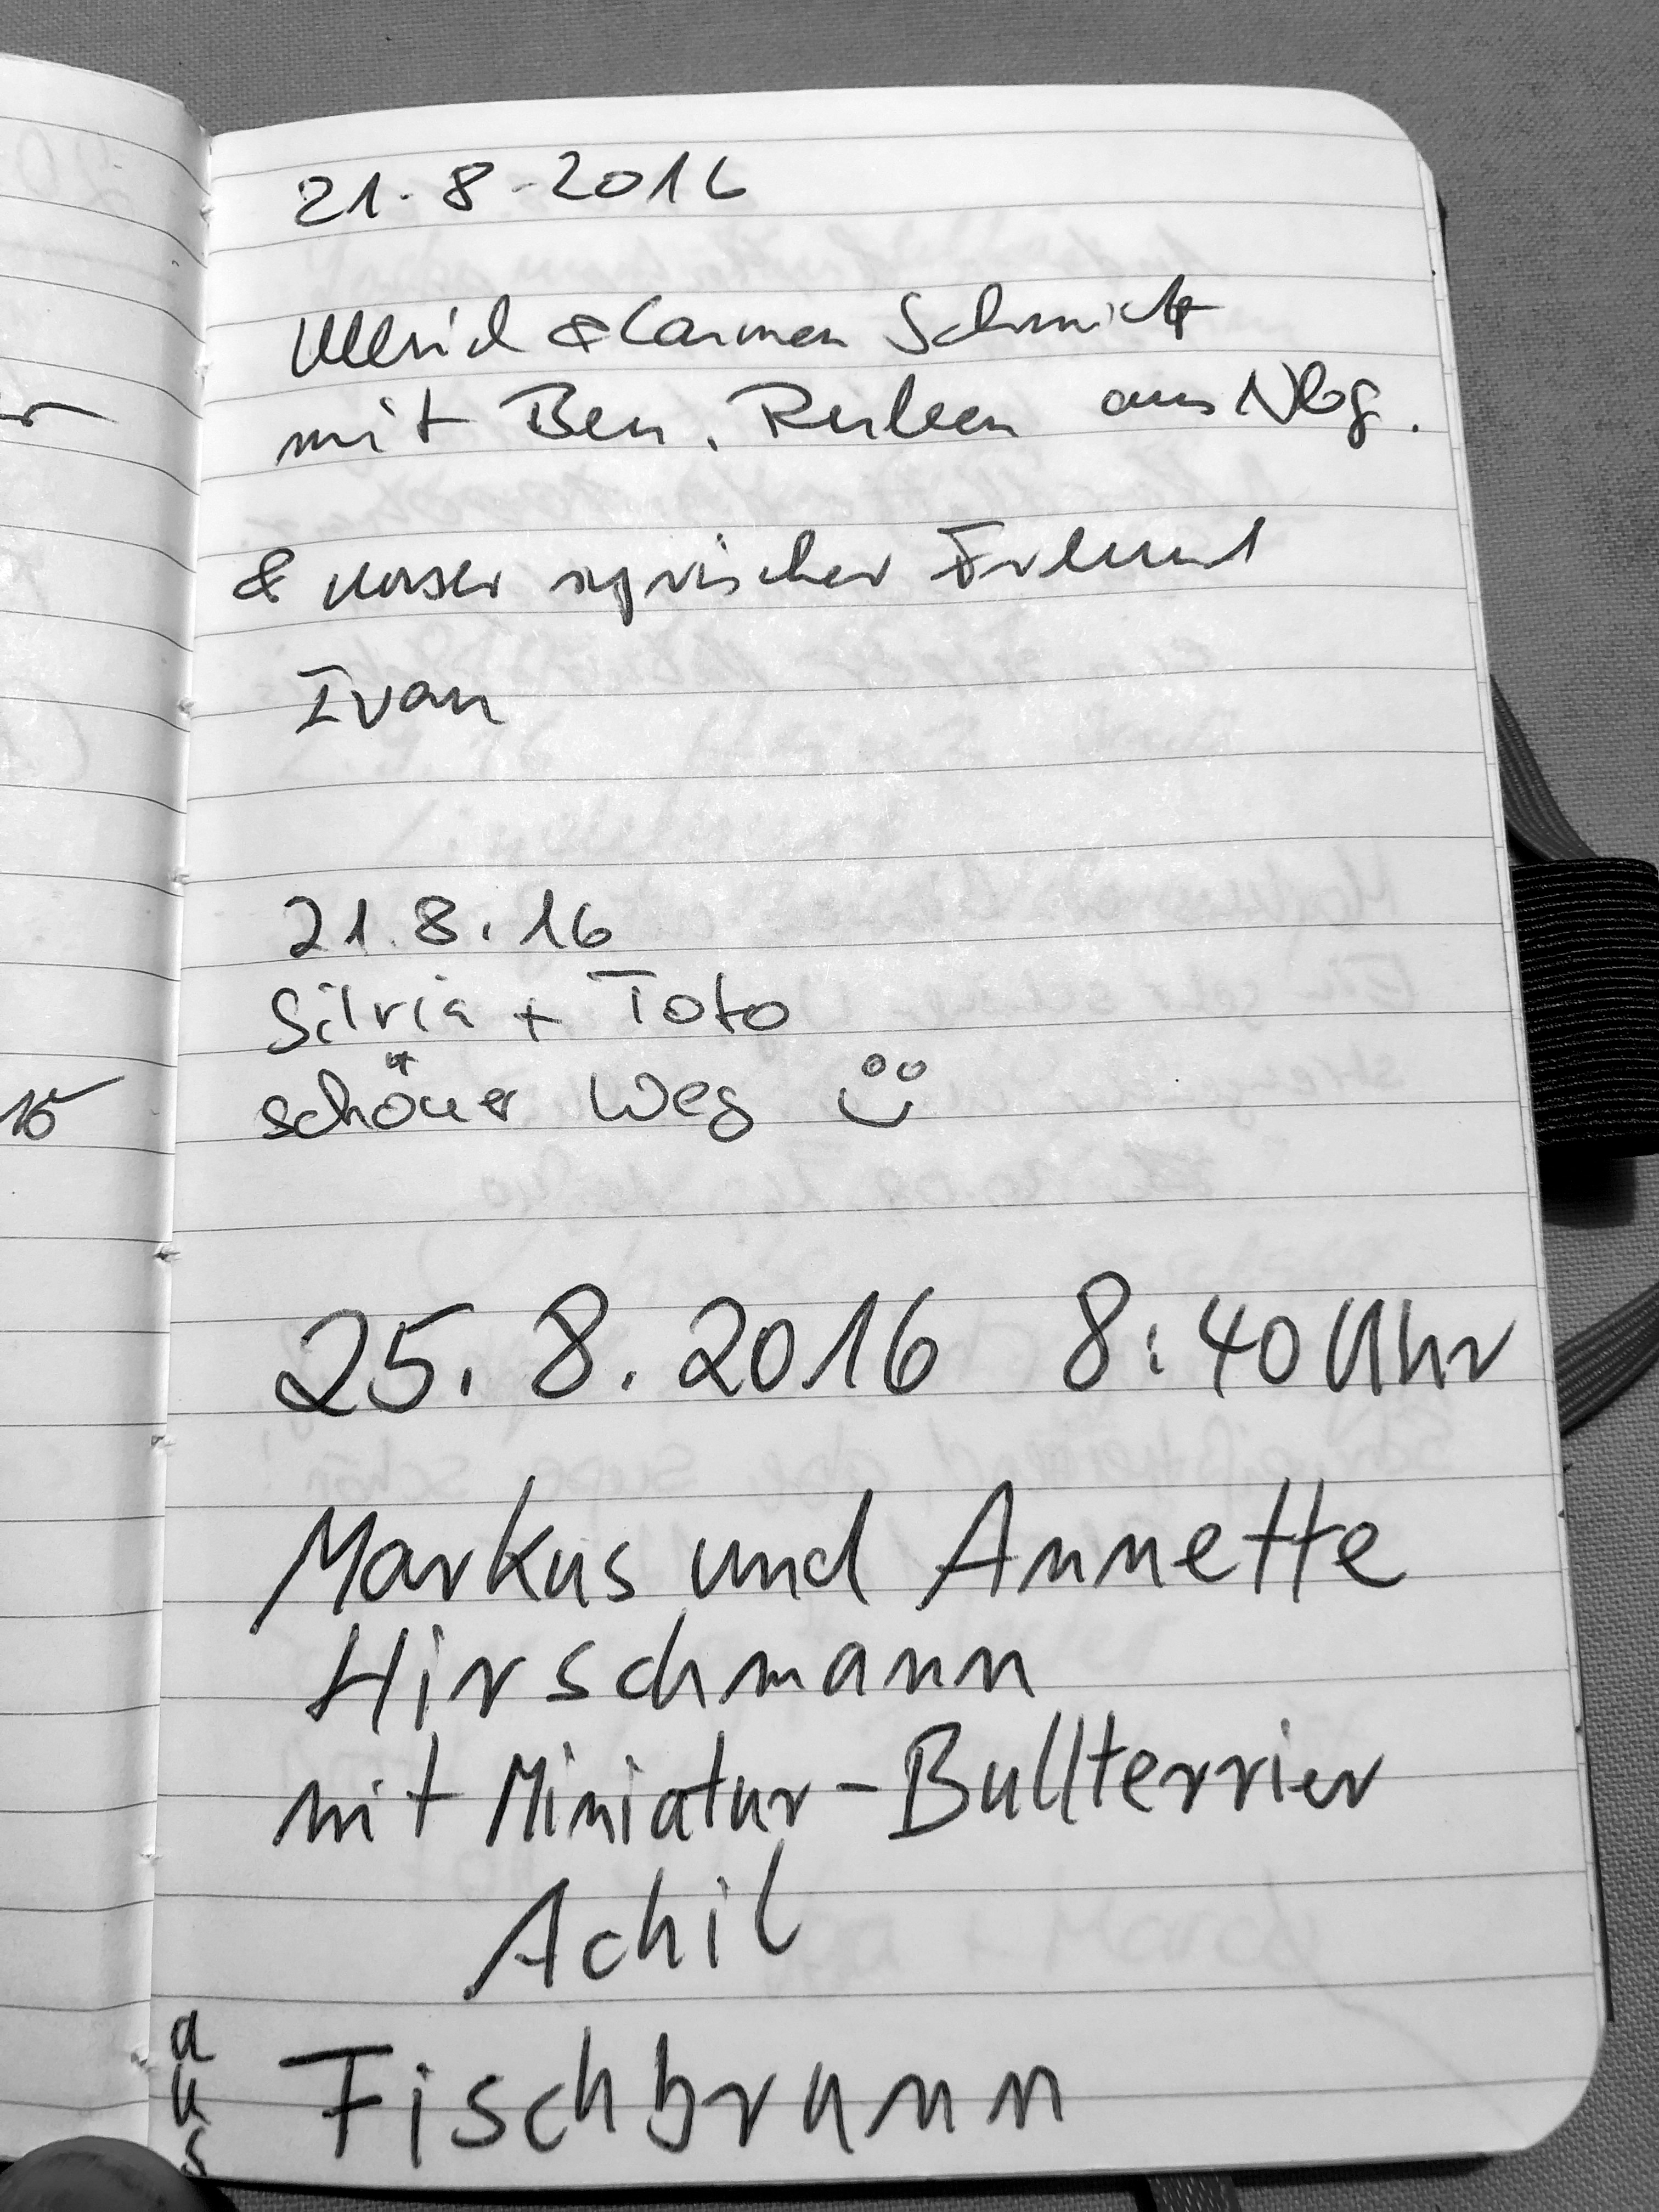 21.8.2016
Ullrich & Carmen Schmidt
mit Ben, Ruben aus Nbg.
& unser syrischer Freund
Ivan
21.8.16
Silvia + Toto
schöner Weg
25.8.2016 8:40 Uhr
Markus und Annette
Hirschmann
mit Miniatur-Bullterrier
Achil
aus Fischbrunn